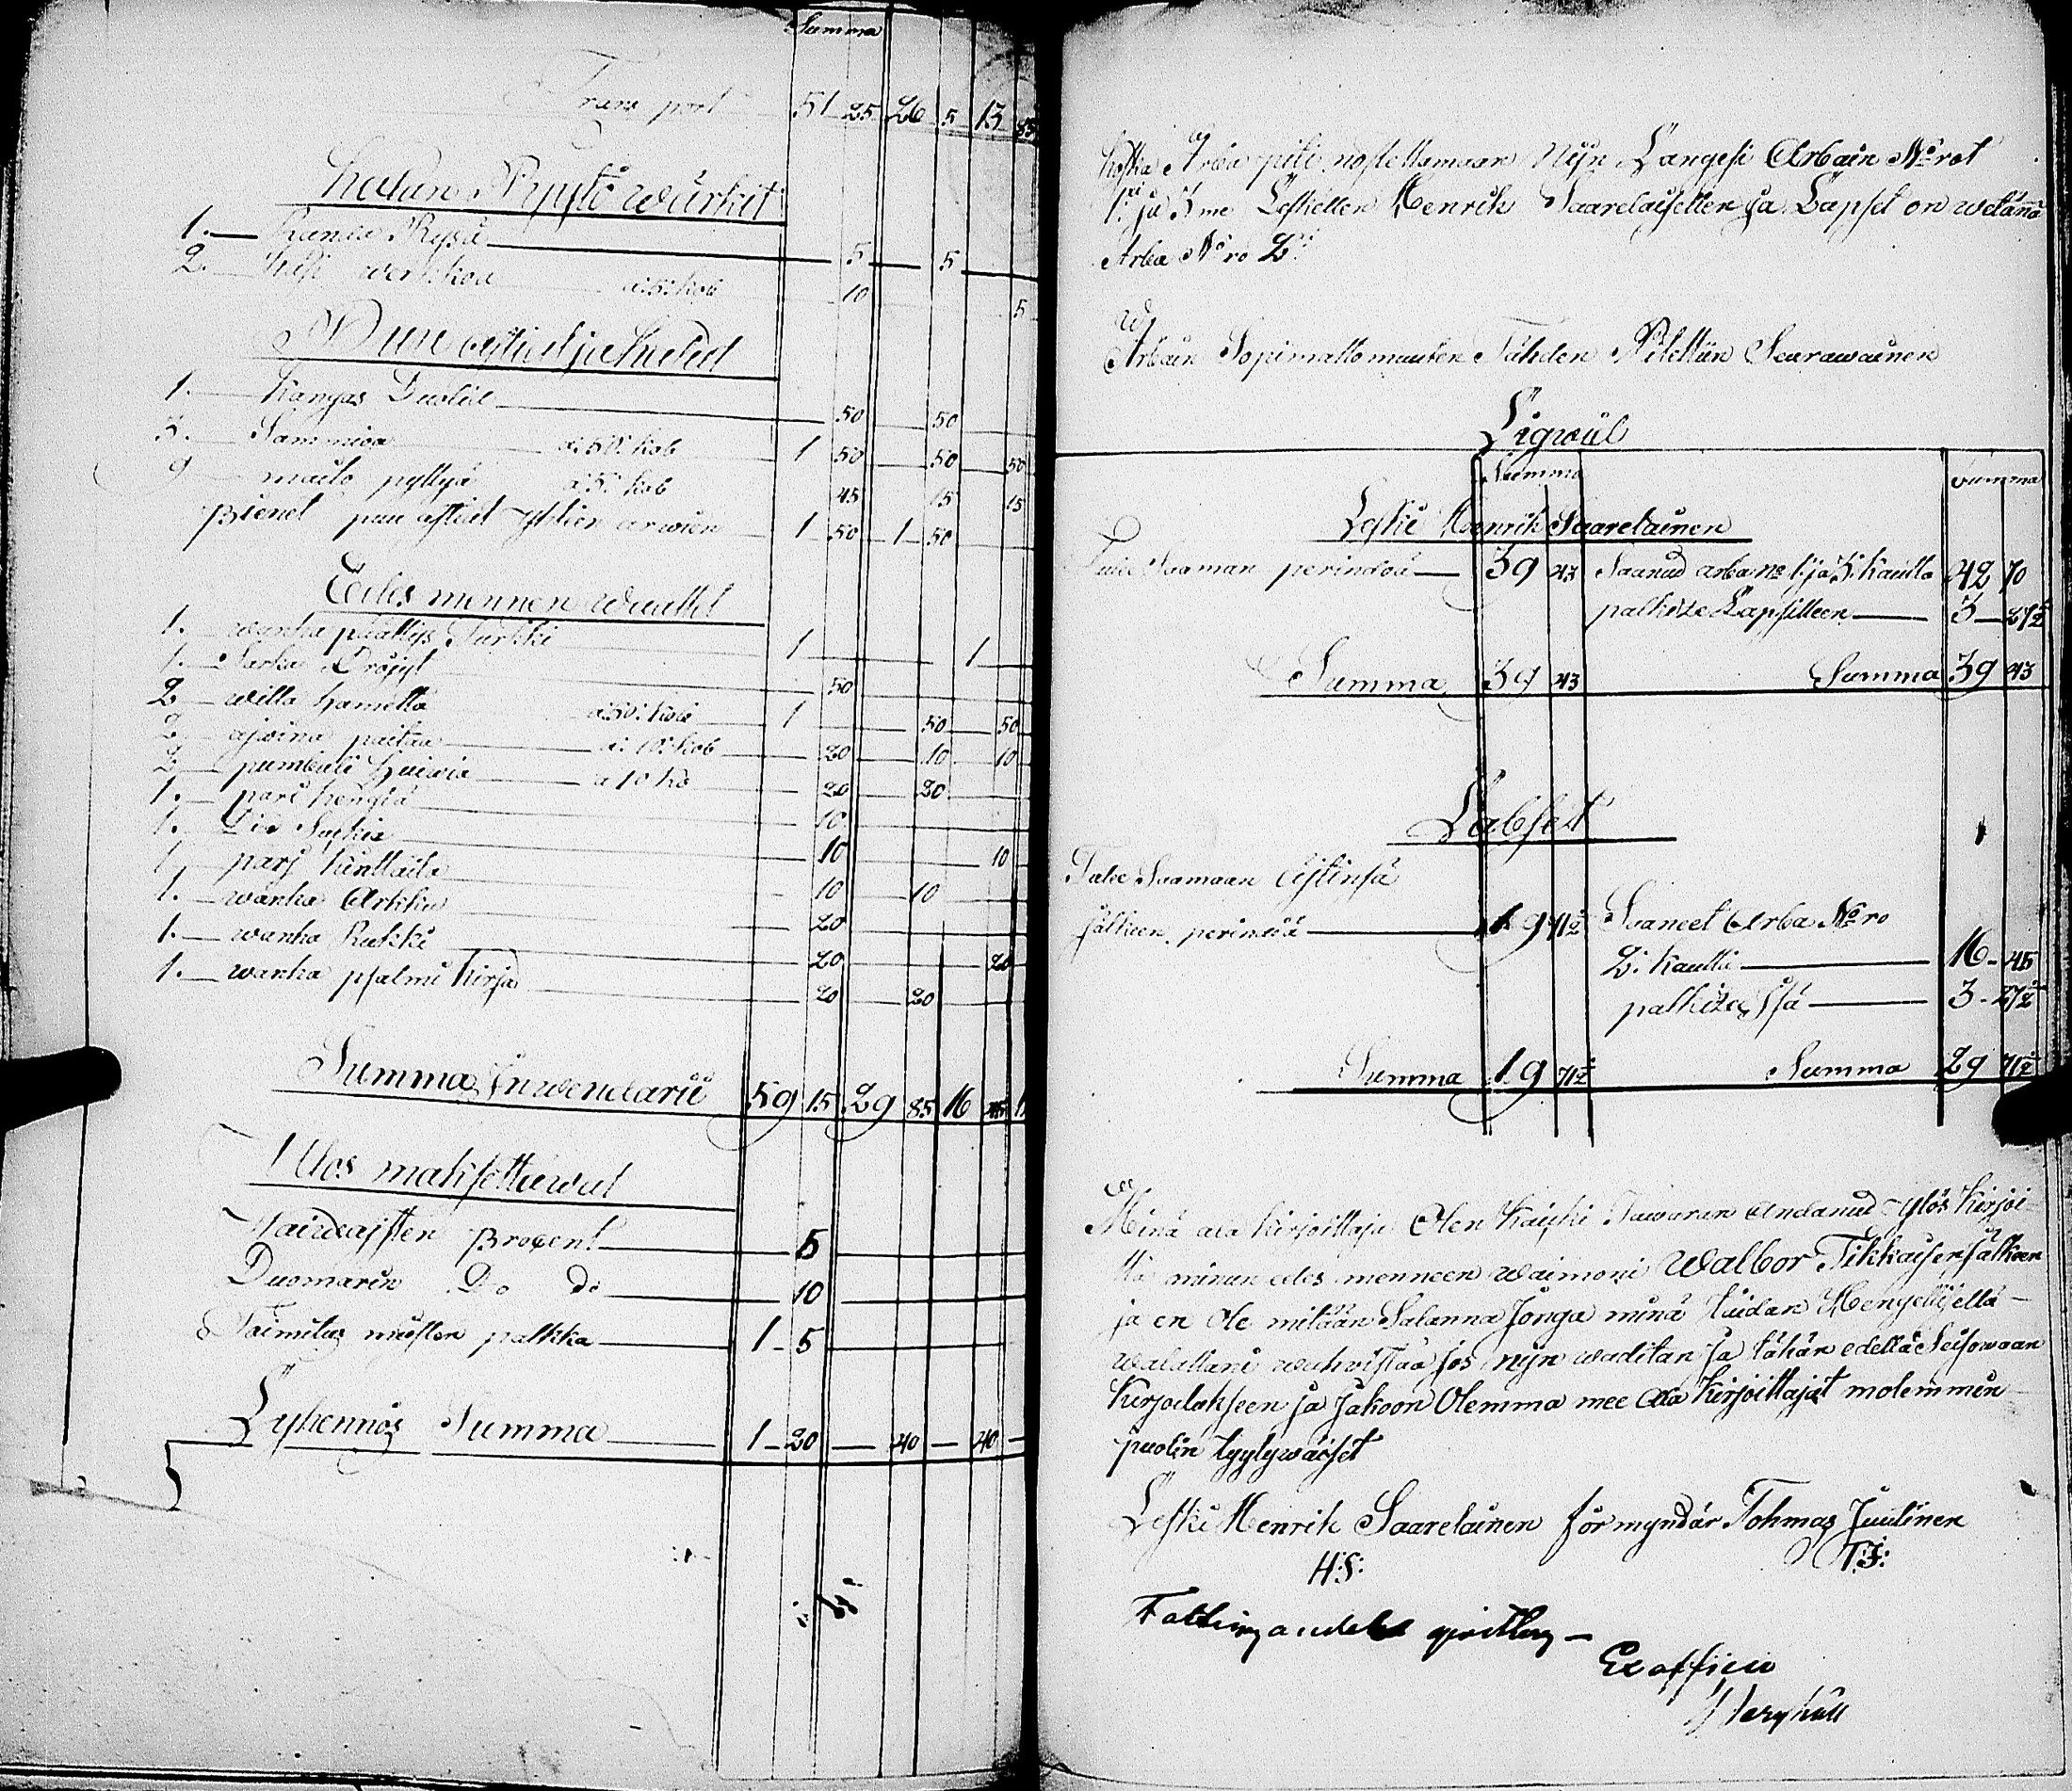 Summa
Transport 51 25 26 5 13 85
Kalun Pyytö wärkit
1. Randa Rysä 5 5
2. werkkoa a: 5: kob 10 5
Puu astiat ja kalut
1. Kangas 50 50
3. Sammioa a: 50: kob 1 50 50 50
9 maito pyttyä a 5: kob 45 15 15
Pienet puu astiat yhten arwoin 1 50 1 50
Edes mennen waattet
1. wanha päällys Turkki 1 1
1. Sarka Tröijyt 50
2 willa hametta a: 50: kob 1 50 50
2 aiwina paitaa a: 10: kob 20 10 10
2 pumbuli huiwia a 10 ko 20 20
1. pari kengiä 10
1. Dio Sukkia 10 10
1. parj kinttaita 10 10
1. wanha Arkku 20
1. wanha Rukki 20 20
1. wanha psalmi kirja 20 20
Summa Inwendarii 59 15 29 85 16 45
Ulos maksettawat
Waiwaisten Procent 5
Duomarin Do Do 10
Toimitus miesten palkka 1 5
Lyhennös Summa 1 20 40 40
Koska Arba piti nostettamaan Nijn Langesi Arbain No rot
1: ja 3 me Leskellen Henrik Saarelaisellen ja Lapset on wetänä
Arba No ro 2:
Arbain Sopimattomuuten Tähden Pitettiin Seurawainen
Ligviid
Summa Summa
Leski Henrik Saarelainen
Tule Saaman perindöä 39 43 Saanud arba No 1: ja 3: kautta 42 70
palkitze Lapsilleen 3 27½
Summa 39 43 Summa 39 43
Labset
Tule Saamaan Äitinsä
jälkeen perindöä 19 71½ Saaneet Arba No ro
2: kautta 16 45
palkitze Isä 3 27½
Summa 19 71½ Summa 29 71½
Minä ala kirjoittaja Olen kaikki Tawaran andanud ylös kirjoi-
tta minun edes menneen waimoni Walbor Tikkaisen jälkeen
ja en ole mitään Salanna Jonga minä taidan Hengelijsellä
walallani wahwistaa jos nijn waditan ja tähän edellä Seisowaan
kirjoitukseen ja jakoon Olemma mee ala kirjoittajat molemmin
puolin tyytywäiset
Leski Henrik Saarelainen förmyndär Tohmas Juutinen
H:S: T:J:
Fattig andelen
Ex officio